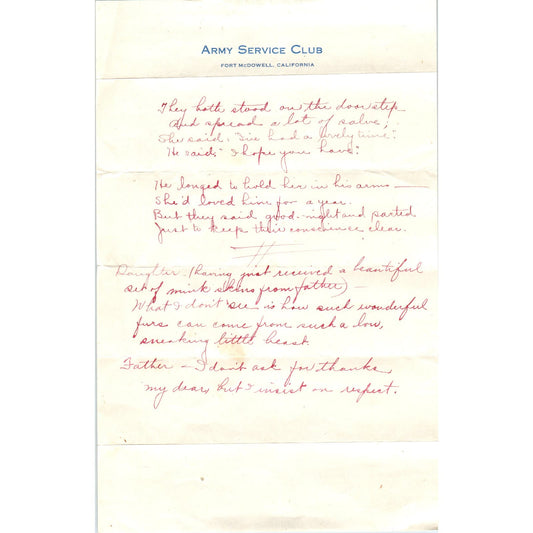 ARMY SERVICE CLUB
FORT MCDOWELL, CALIFORNIA
They both stood on the doorstep
And spread a lot of salve;
She said, "I've had a lovely time."
He said, "I hope you have."
He longed to hold her in his arms —
She'd loved him for a year.
But they said good-night and parted
Just to keep their conscience clear.
Daughter - (having just received a beautiful
set of mink skins from father) -
What I don't see is how such wonderful
furs can come from such a low,
sneaking little beast.
Father - I don't ask for thanks,
my dear, but I insist on respect.